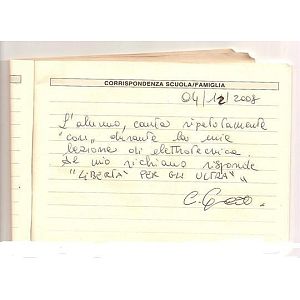 CORRISPONDENZA SCUOLA/FAMIGLIA
04/12/2008
L'alunno, canta ripetutamente
"cori" durante la mia
lezione di elettrotecnica.
Al mio richiamo risponde
"LIBERTA' PER GLI ULTRA'"